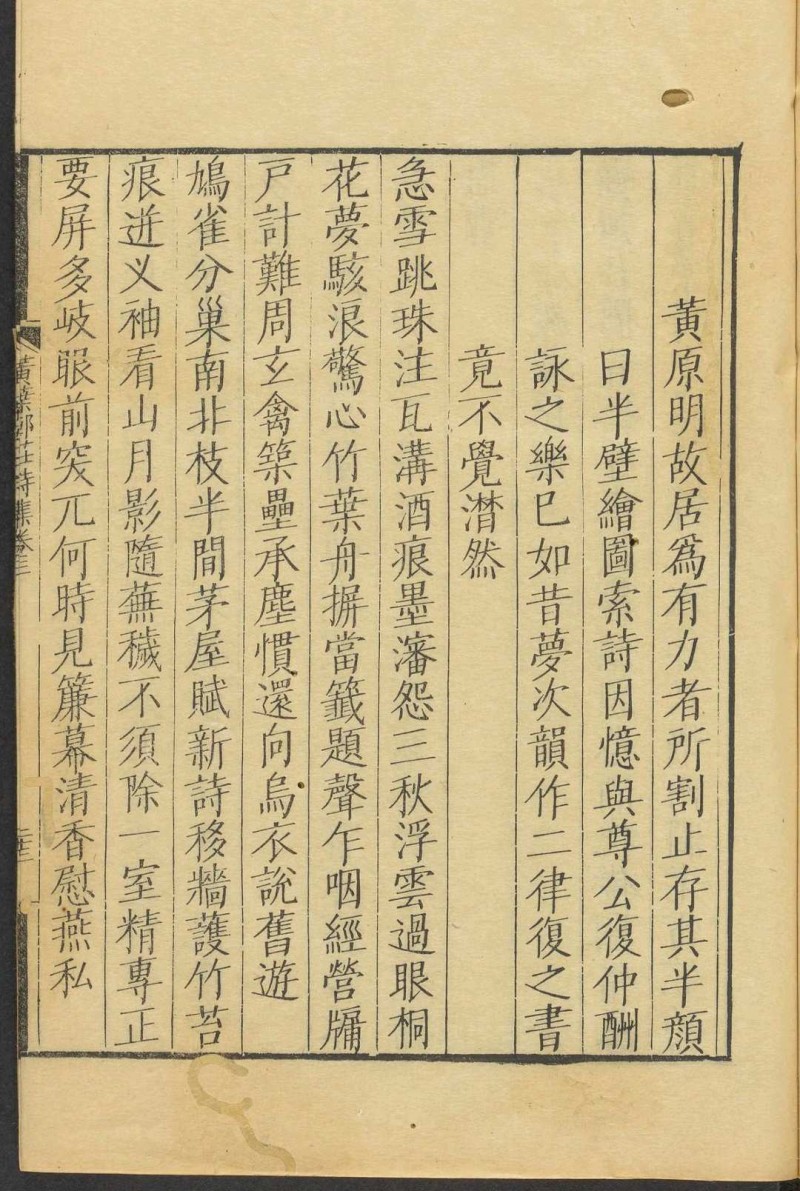 黃原明故居爲有力者所割止存其半顏
曰半壁繪圖索詩因憶與尊公復仲酬
詠之樂已如昔夢次韻作二律復之書
竟不覺潸然
急雪跳珠注瓦溝酒痕墨瀋怨三秋浮雲過眼桐
花夢駭浪驚心竹葉舟摒當籤題聲乍咽經營牖
戸計難周玄禽築壘承塵慣還向烏衣說舊遊
鳩雀分巢南北枝半間茅屋賦新詩移牆護竹苔
痕迸义袖看山月影隨蕪穢不須除一室精專正
要屏多岐眼前突兀何時見簾幕清香慰燕私
黃葉邨莊詩集卷三